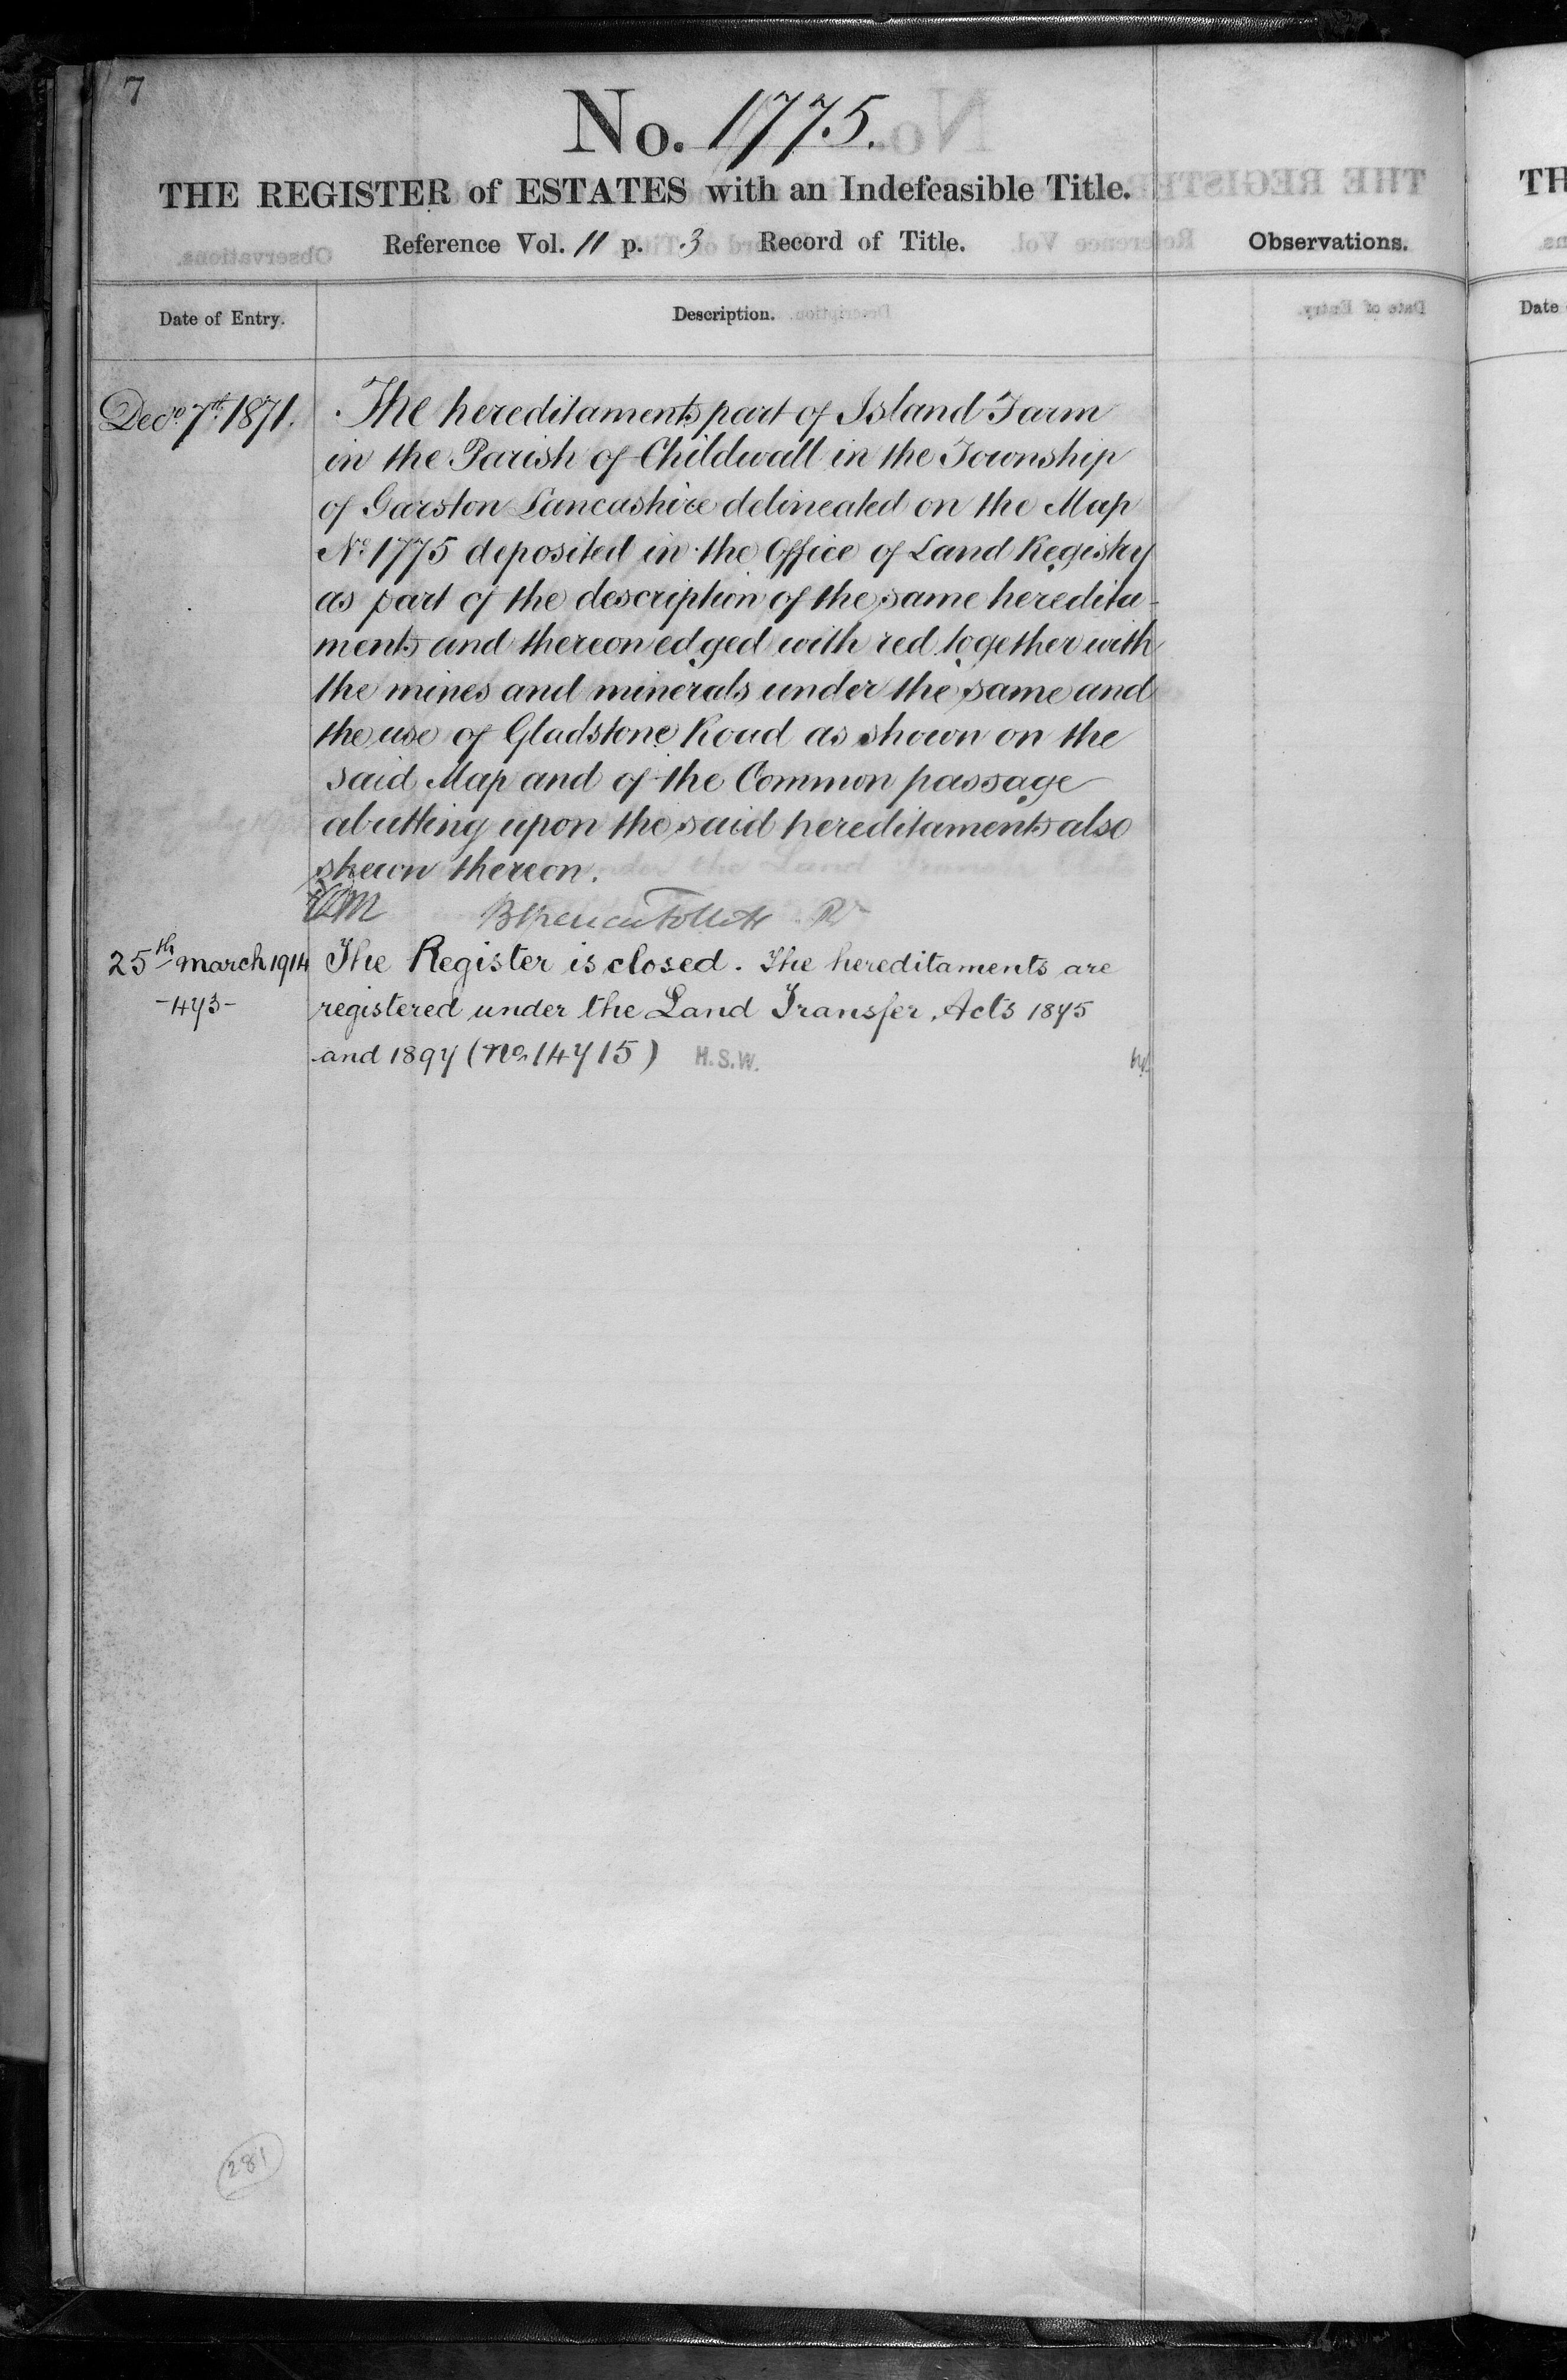 7
No. 1775.
THE REGISTER of ESTATES with an Indefeasible Title.
Reference Vol. 11 p. 3 Record of Title.
Observations.
Date of Entry.
Description.
Decr. 7th 1871.
The hereditaments part of Island Farm
in the Parish of Childwall in the Township
of Garston Lancashire delineated on the Map
No. 1775 deposited in the Office of Land Registry
as part of the description of the same heredita-
ments and thereon edged with red together with
the mines and minerals under the same and
the use of Gladstone Road as shown on the
said Map and of the Common passage
abutting upon the said hereditaments also
shewn thereon.
25th March 1914
-473-
The Register is closed. The hereditaments are
registered under the Land Transfer Acts 1875
and 1897 (No. 14715) H.S.W.
281
TH
Date